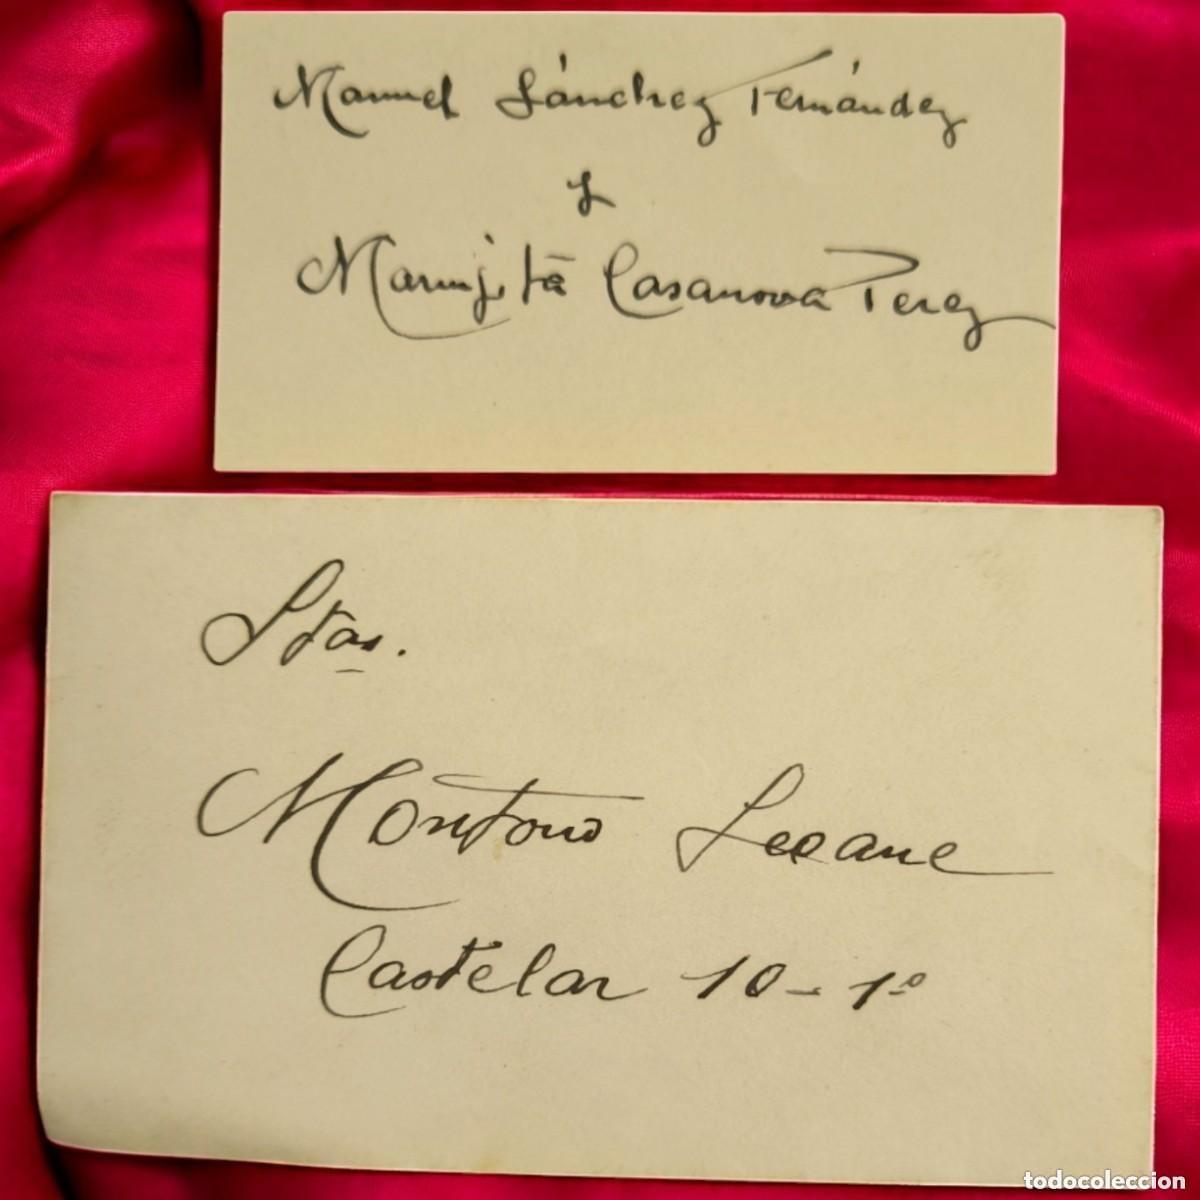 Manuel Sánchez Fernández
y
Marujita Casanova Perez
Stas.
Montoro Seoane
Castelar 10-1º
todocoleccion